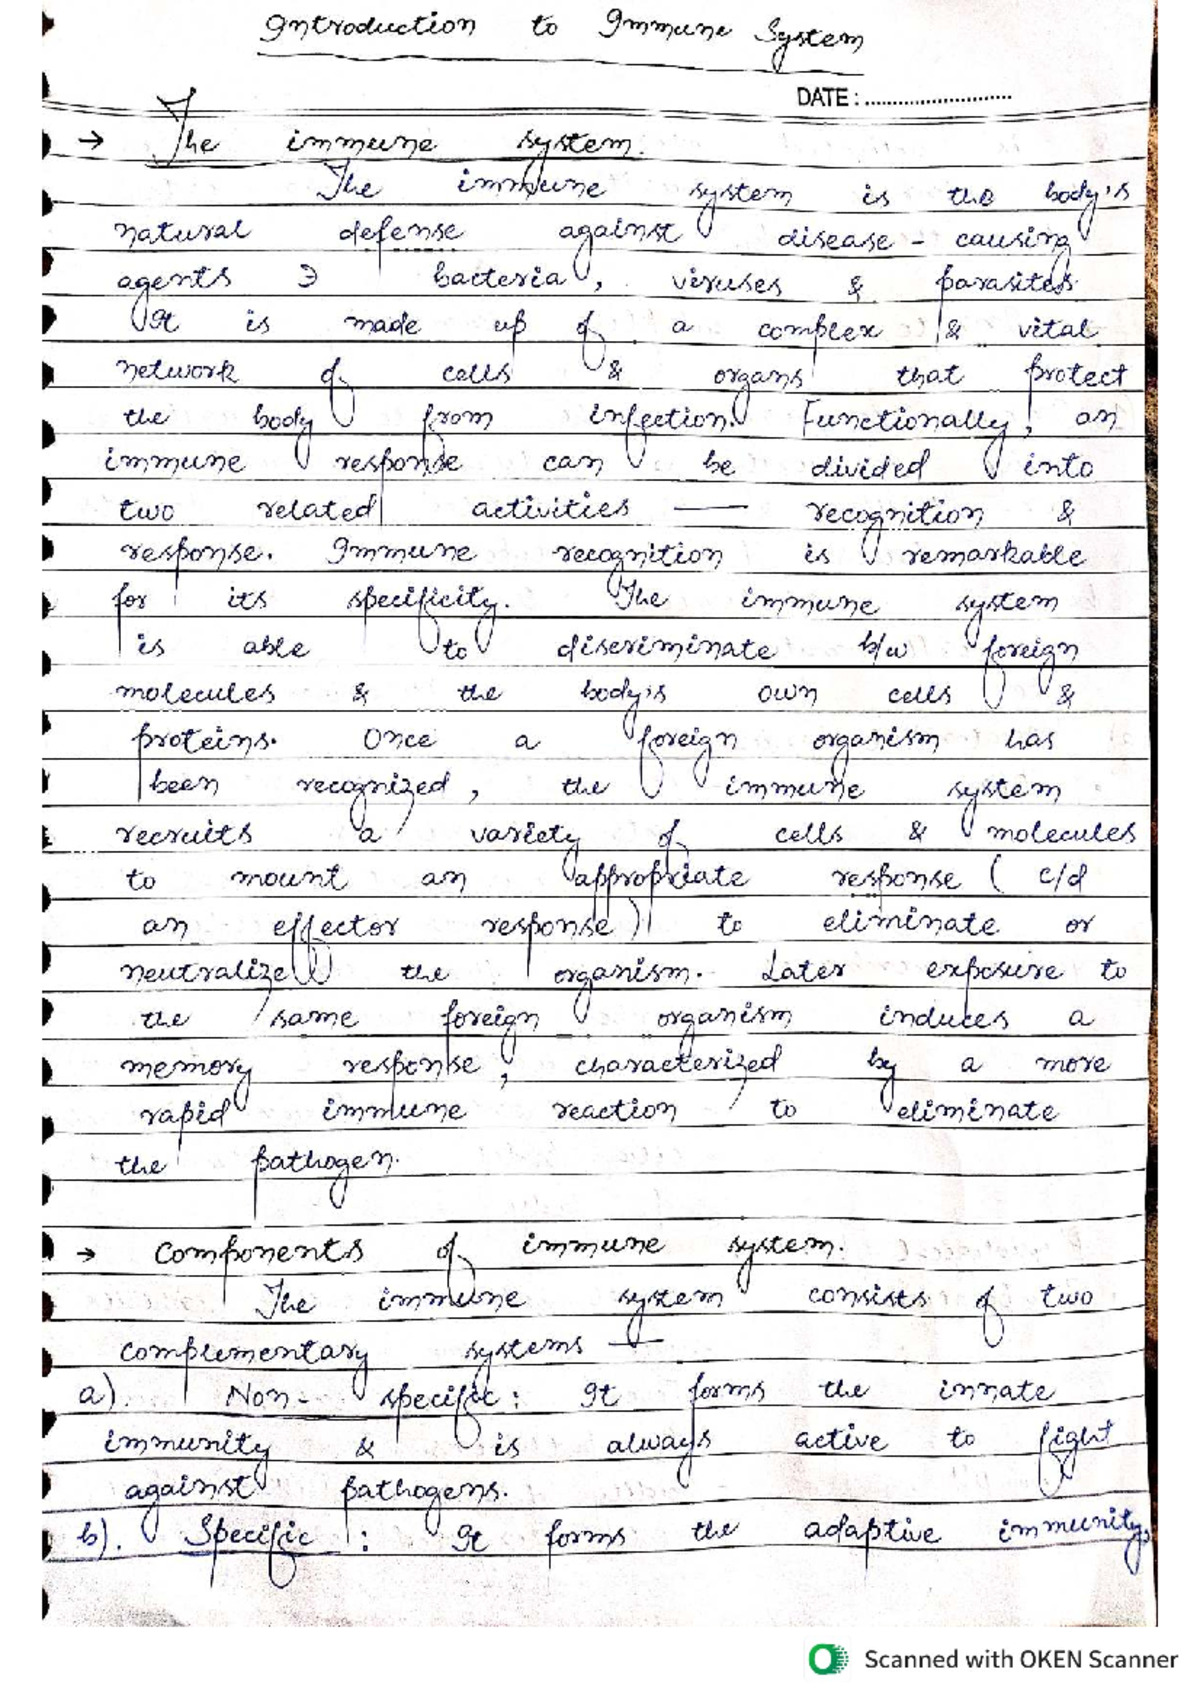 Introduction to Immune System
DATE : ............................
→ The immune system.
The immune system is the body's
natural defense against disease - causing
agents ∋ bacteria, viruses & parasites.
It is made up of a complex & vital
network of cells & organs that protect
the body from infection. Functionally, an
immune response can be divided into
two related activities — recognition &
response. Immune recognition is remarkable
for its specificity. The immune system
is able to discriminate b/w foreign
molecules & the body's own cells &
proteins. Once a foreign organism has
been recognized, the immune system
recruits a variety of cells & molecules
to mount an appropriate response ( c/d
an effector response) to eliminate or
neutralize the organism. Later exposure to
the same foreign organism induces a
memory response, characterized by a more
rapid immune reaction to eliminate
the pathogen.
→ Components of immune system.
The immune system consists of two
complementary systems —
a). Non - specific : It forms the innate
immunity & is always active to fight
against pathogens.
b). Specific : It forms the adaptive immunity,
Scanned with OKEN Scanner